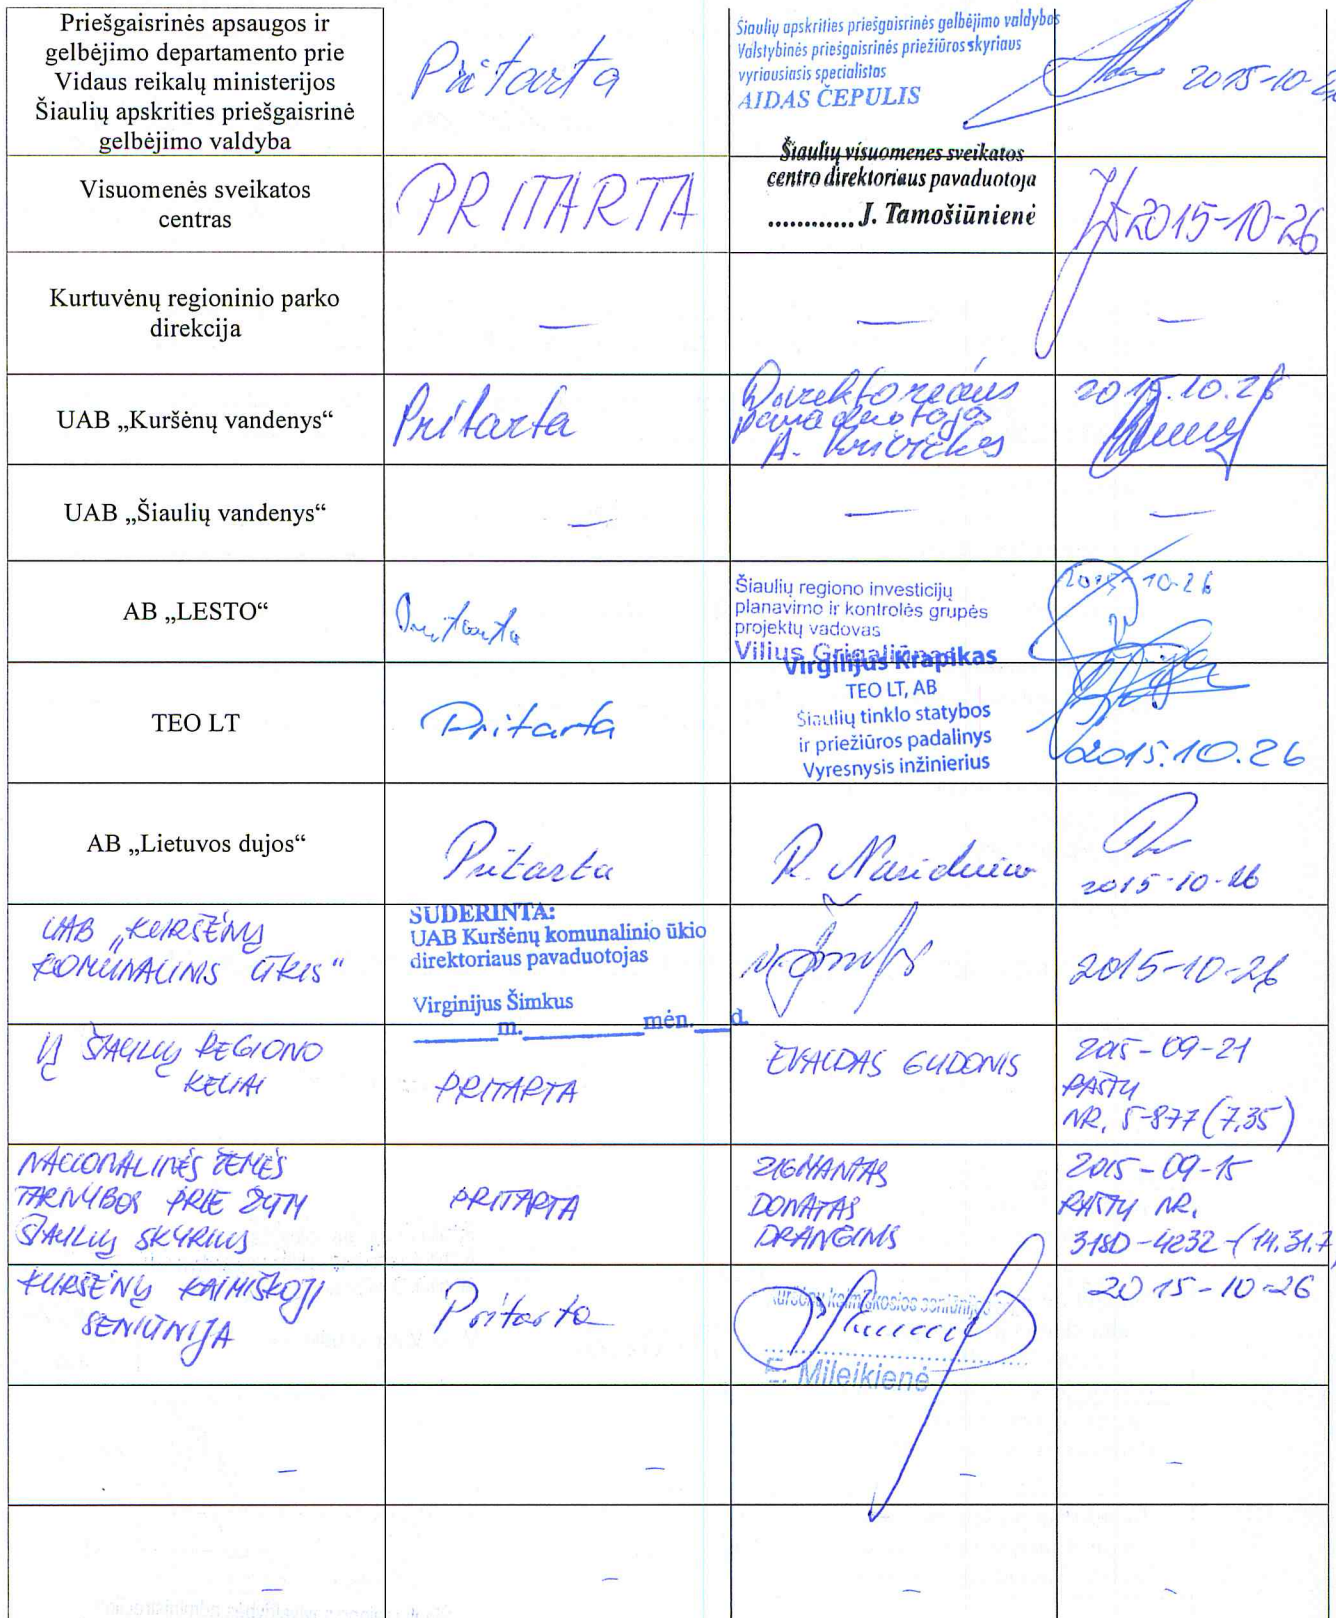 Priešgaisrinės apsaugos ir
gelbėjimo departamento prie
Vidaus reikalų ministerijos
Šiaulių apskrities priešgaisrinė
gelbėjimo valdyba
Pritarta
Šiaulių apskrities priešgaisrinės gelbėjimo valdybos
Valstybinės priešgaisrinės priežiūros skyriaus
vyriausiasis specialistas
AIDAS ČEPULIS
2015-10-2
Visuomenės sveikatos
centras
PRITARTA
Šiaulių visuomenes sveikatos
centro direktoriaus pavaduotoja
............ J. Tamošiūnienė
2015-10-26
Kurtuvėnų regioninio parko
direkcija
—
—
—
UAB „Kuršėnų vandenys“
Pritarta
Direktoriaus
pavaduotojas
A. Krivickas
2015.10.26
UAB „Šiaulių vandenys“
—
—
—
AB „LESTO“
Pritarta
Šiaulių regiono investicijų
planavimo ir kontrolės grupės
projektų vadovas
Vilius Grigaliūnas
2015-10-26
TEO LT
Pritarta
Virgilijus Krapikas
TEO LT, AB
Šiaulių tinklo statybos
ir priežiūros padalinys
Vyresnysis inžinierius
2015.10.26
AB „Lietuvos dujos“
Pritarta
R.
2015-10-26
UAB „KURŠĖNŲ
KOMUNALINIS ŪKIS“
SUDERINTA:
UAB Kuršėnų komunalinio ūkio
direktoriaus pavaduotojas
Virginijus Šimkus
______m.__________mėn.___d.
2015-10-26
VĮ ŠIAULIŲ REGIONO
KELIAI
PRITARTA
EVALDAS GUDONIS
2015-09-21
RAŠTU
NR. 5-877 (7.35)
NACIONALINĖS ŽEMĖS
TARNYBOS PRIE ŽŪM
ŠIAULIŲ SKYRIUS
PRITARTA
ZIGMANTAS
DONATAS
DRANGINIS
2015-09-15
RAŠTU NR.
31SD-4232-(14.31.7
KURŠĖNŲ KAIMIŠKOJI
SENIŪNIJA
Pritarta
Kuršėnų kaimiškosios seniūnijos
E. Mileikienė
2015-10-26
–
–
–
–
–
–
–
–